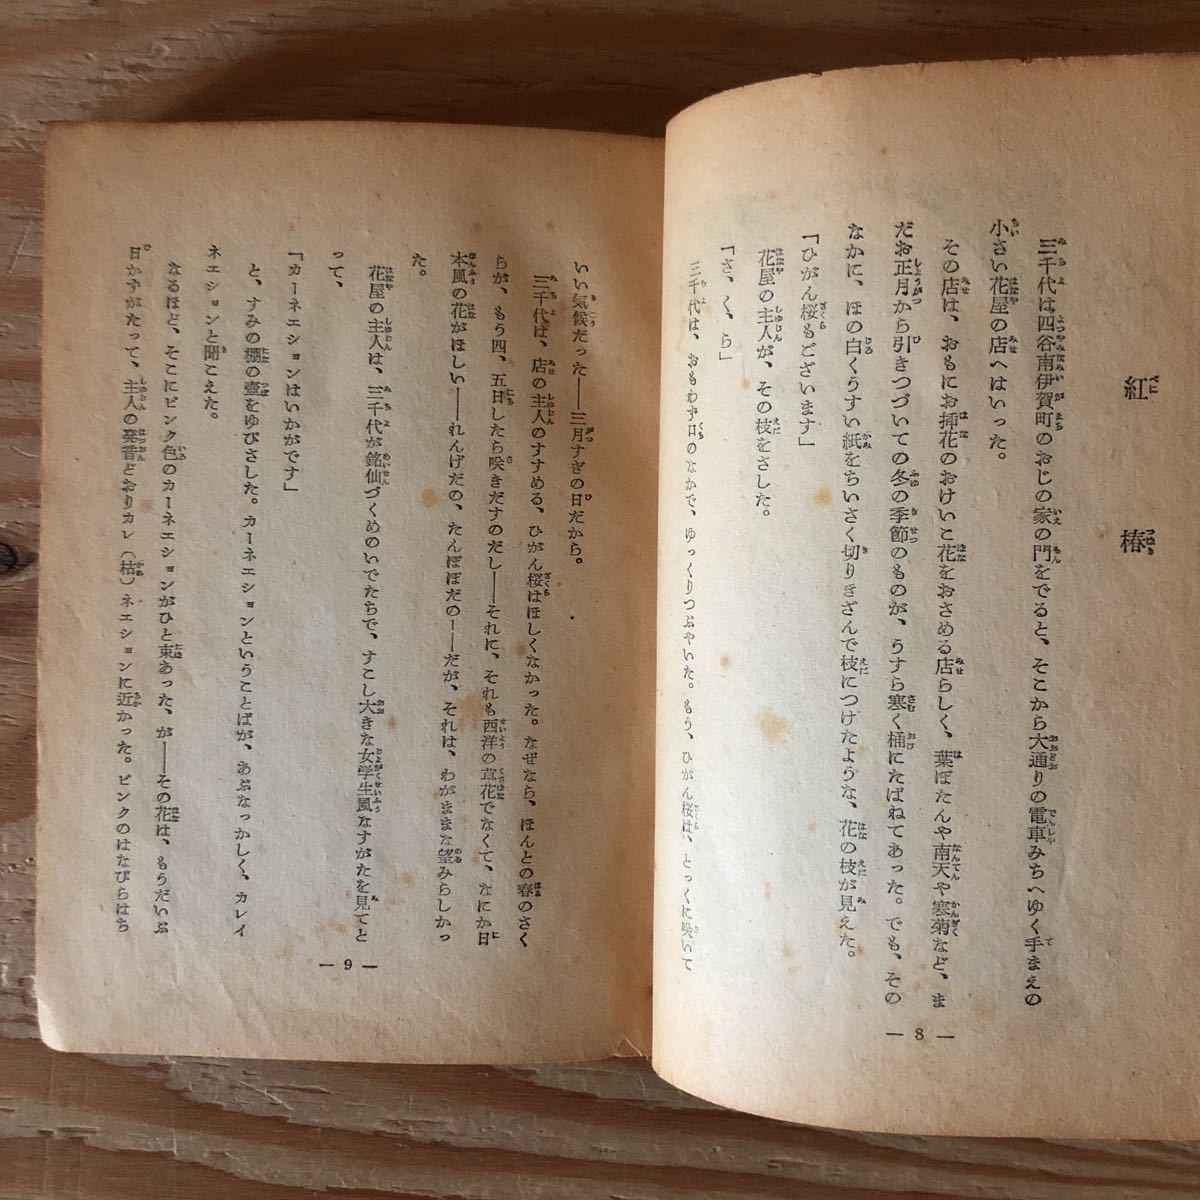 紅椿
三千代は四谷南伊賀町のおじの家の門をでると、そこから大通りの電車みちへゆく手まえの
小さい花屋の店へはいった。
その店は、おもにお挿花のおけいこ花をおさめる店らしく、葉ぼたんや南天や寒菊など、ま
だお正月から引きつづいての冬の季節のものが、うすら寒く桶にたばねてあった。でも、その
なかに、ほの白くうすい紙をちいさく切りきざんで枝につけたような、花の枝が見えた。
「ひがん桜もございます」
花屋の主人が、その枝をさした。
「さ、く、ら」
三千代は、おもわず口のなかで、ゆっくりつぶやいた。もう、ひがん桜は、とっくに咲いて
— 8 —
いい気候だった——三月すぎの日だから。
三千代は、店の主人のすすめる、ひがん桜はほしくなかった。なぜなら、ほんとの春のさく
らが、もう四、五日したら咲きだすのだし——それに、それも西洋の草花でなくて、なにか日
本風の花がほしい——れんげだの、たんぽぽだの——だが、それは、わがままな望みらしかっ
た。
花屋の主人は、三千代が銘仙づくめのいでたちで、すこし大きな女学生風なすがたを見てと
って、
「カーネエションはいかがです」
と、すみの棚の壺をゆびさした。カーネエションということばが、あぶなっかしく、カレイ
ネエションと聞こえた。
なるほど、そこにピンク色のカーネエションがひと束あった、が——その花は、もうだいぶ
日かずがたって、主人の発音どおりカレ（枯）ネエションに近かった。ピンクのはなびらはち
— 9 —